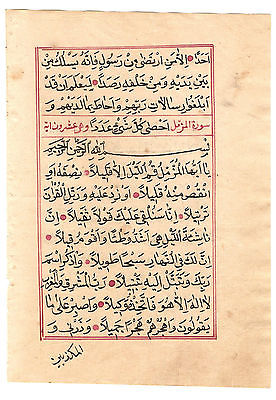 احدا الا من ارتضى من رسول فانه يسلك من
بين يديه ومن خلفه رصدا ليعلم ان قد
ابلغوا رسالات ربهم واحاط بما لديهم و
سورة المزمل احصى كل شيء عددا وهي عشرون اية
بسم الله الرحمن الرحيم
يا ايها المزمل قم الليل الا قليلا نصفه او
انقص منه قليلا او زد عليه ورتل القران
ترتيلا انا سنلقي عليك قولا ثقيلا ان
ناشئة الليل هي اشد وطئا واقوم قيلا
ان لك في النهار سبحا طويلا واذكر اسم
ربك وتبتل اليه تبتيلا رب المشرق والمغرب
لا اله الا هو فاتخذه وكيلا واصبر على ما
يقولون واهجرهم هجرا جميلا وذرني و
المكذبين